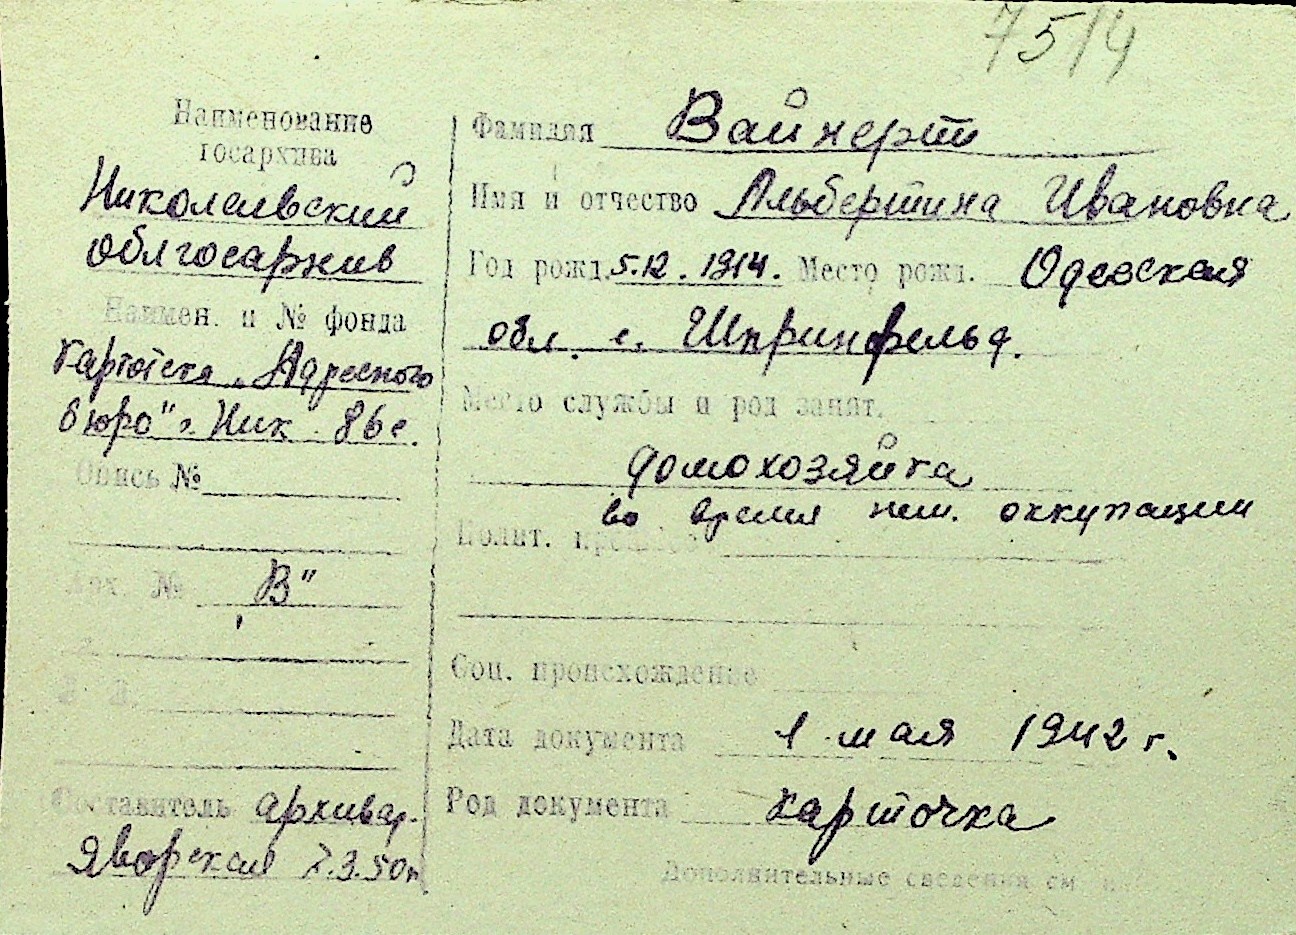 7514
Наименование
госархива
Николаевский
облгосархив
Наимен. и № фонда
картотека „Адресного
бюро" г. Ник
Опись №
Арх. №
„В"
Составитель архивар.
Яворская 7.3.50г
Фамилия Вайнерт
Имя и отчество Альбертина Ивановна
Год рожд. 5.12.1914. Место рожд. Одесская
обл. с. Шпринфельд.
Место службы и род занят.
домохозяйка
во время нем. оккупации
Полит.
Соц. происхождение
Дата документа 1 мая 1942 г.
Род документа карточка
Дополнительные сведения см.